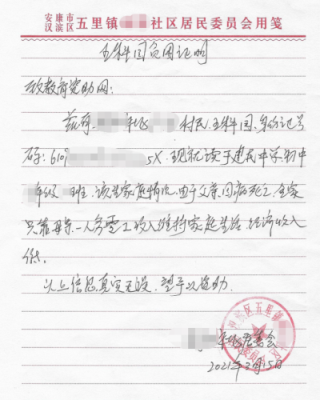 安康市
汉滨区 五里镇 社区居民委员会用笺
贫困证明
致教育资助网：
兹有， 社区 村民，身份证号
码：6109 5X 现就读于建民中学初中
年级 班，该生家庭情况，由于父亲因病死亡，全家
只靠母亲一人务零工收入维持家庭生活，经济收入
低。
以上信息真实无误，望予以资助。
居委会
2021年2月15日